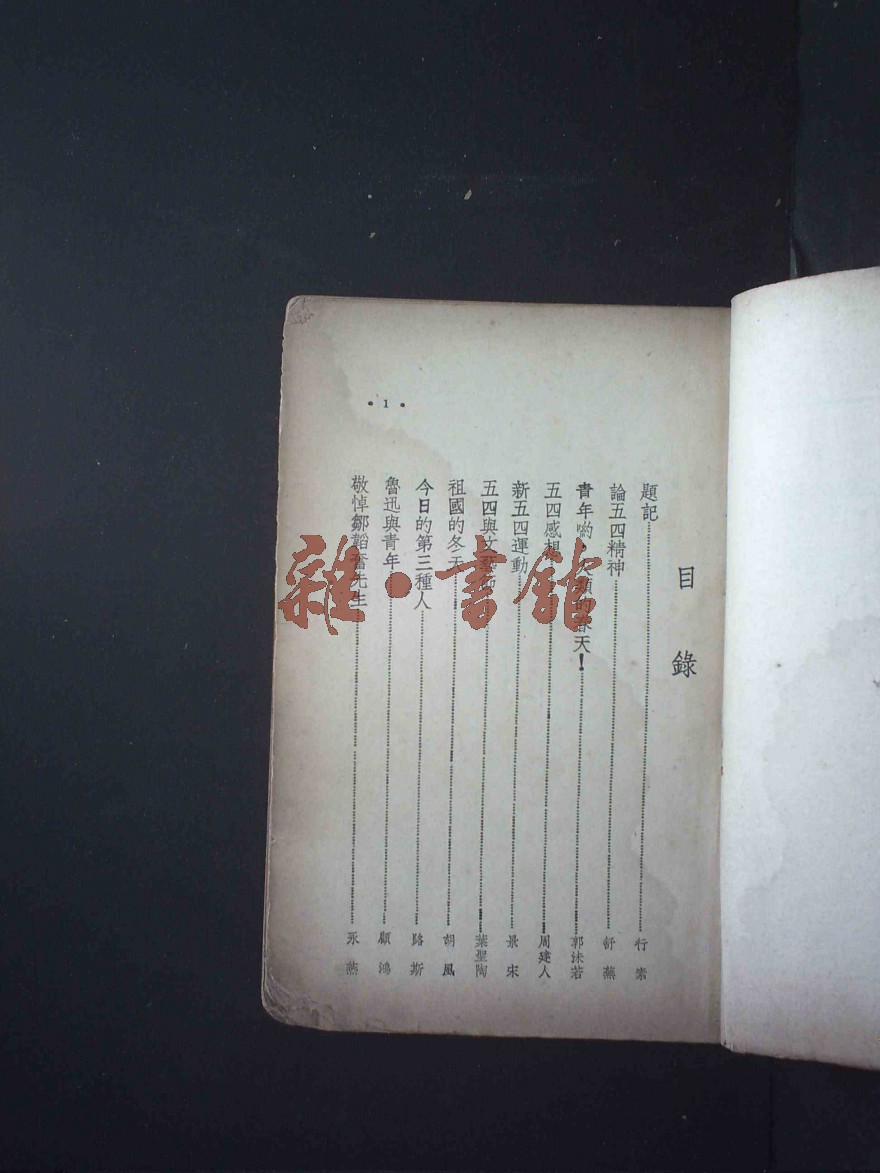 目錄
題記 行素
論五四精神 舒蕪
青年喲人類的春天! 郭沫若
五四感想 周建人
新五四運動 景宋
五四與文藝節 葉聖陶
祖國的冬天 胡風
今日的第三種人 路斯
魯迅與青年 顧鴻
敬悼鄒韜奮先生 永燕
• 1 •
雜·書館